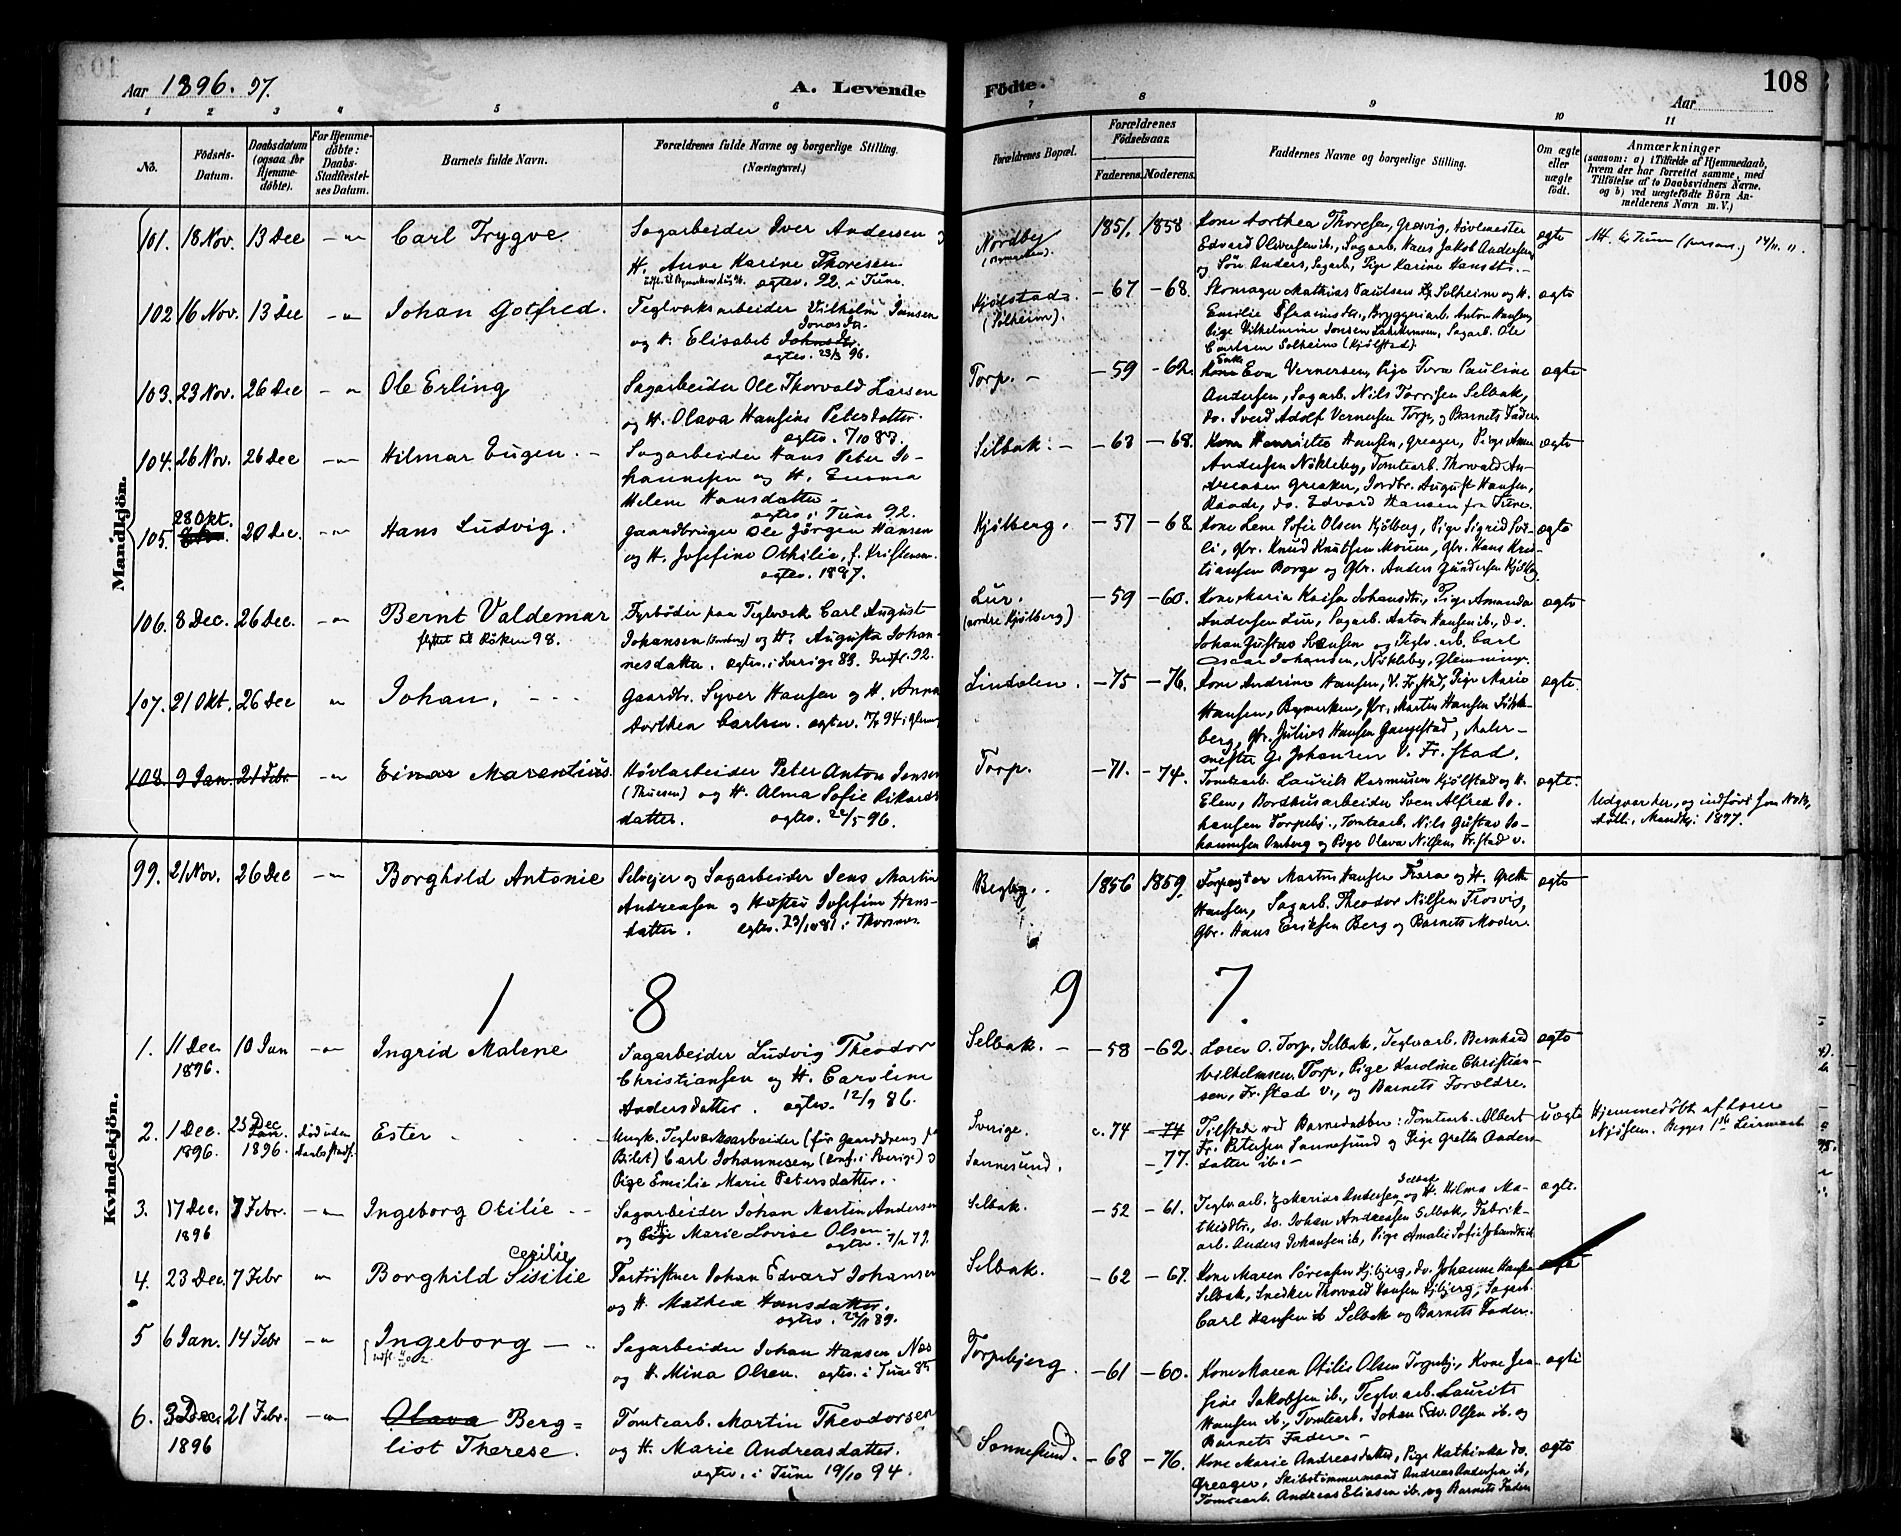 Aar 1896. 97.
A. Levende
Födte.
108
Aar
1 2 3 4 5 6 7 8 9 10 11
No.
Födsels-
Datum.
Daabsdatum
(ogsaa for
Hjemme-
døbte).
For Hjemme-
döbte:
Daabs-
Stadfæstel-
ses Datum.
Barnets fulde Navn.
Forældrenes fulde Navne og borgerlige Stilling.
(Næringsvei.)
Forældrenes Bopæl.
Forældrenes
Födselsaar.
Faderens. Moderens.
Faddernes Navne og borgerlige Stilling.
Om ægte
eller
uægte
födt.
Anmærkninger
(saasom: a) i Tilfælde af Hjemmedaab,
hvem der har forrettet samme, med
Tilföielse af to Daabsvidners Navne,
og b) ved uægtefödte Börn An-
melderens Navn m. V.)
Mandkjön.
101. 18 Nov. 13 Dec Carl Trygve
Sagarbeider Iver Andersen
H. Anne Karine Thoresen
ægtev. 92. i Tune.
Nordby
1851. 1858
Kone Dorthea Thoresen, Gresvig, Høvlemester
Edvard Olivesen ib., Sagarb. Hans Jakob Andersen
og Søn Anders, Sagarb., Pige Karine Hansdtr.
ægte
102 16 Nov. 13 Dec Johan Gotfred.
Teglværksarbeider Vilhelm Jansen
Jonasdtr.
og H. Elisabet
ægtev. 23/3 96.
Kjølstad.
(Solheim).
-67 -68.
Skomager Mathias Paulsen Solheim og H.
Emilie Efraimsdtr., Bryggeriarb. Anton Hansen,
Pige Vilhelmine Jonsen, Sagarb. Ole
Carlsen Solheim (Kjølstad).
ægte
103. 23 Nov. 26 Dec Ole Erling
Sagarbeider Ole Thorvald Larsen
og H. Olava Hansine Petersdatter.
ægtev. 7/10 83.
Torp.
-59 -62.
Enke Eva Vernersen, Pige Thora Pauline
Andersen, Sagarb. Nils Torrisen Selbak,
do. Sverd Adolf Vernersen Torp, og Barnets Fader
ægte
104. 26 Nov. 26 Dec Hilmar Eugen.
Sagarbeider Hans Peter Jo-
hannesen og H. Emma
Helene Hansdatter
ægtev. i Tune 92.
Selbak.
-63 -68.
Kone Henriette Hansen, Greager, Pige Anna
Andersen Nøkleby, Tomtearb. Thorvald An-
dreasen Greaker, Jordbr. August Hansen,
Raade, do. Edvard Hansen fra Tune.
ægte
105. 28 Okt. 20 Dec. Hans Ludvig.
Gaardbruger Ole Jørgen Hansen
og H. Josefine Othilie, f. Kristensen
ægtev. 1887.
Kjølberg.
-57 -68.
Kone Lene Sofie Olsen Kjølberg, Pige Sigrid Svi-
li, Gbr. Knud Knutsen Moum, Gbr. Hans Kris-
tiansen Borge og Gbr. Anders Gundersen Kjølberg
ægte
106. 8 Dec. 26 Dec. Bernt Valdemar
flyttet til Röken 98.
Fyrbøder paa Teglværk Carl August
Johansen og H. Augusta Johan-
nesdatter. ægtev. i Sverige 83. Indfl. 92.
Lur.
(nordre Kjølberg)
-59 -60.
Kone Maria Kaisa Johansdtr., Pige Amanda
Andersen Lur, Sagarb. Anton Hansen ib., do.
Johan Gustav Svensen og Teglv.arb. Carl
Oscar Johansen, Nøkleby, Glemminge.
ægte
107. 21 Okt. 26 Dec Johan.
Gaardbr. Syver Hansen og H. Anna
Dorthea Carlsen. ægtev. 94 i Glem
Lindalen.
-75 -76.
Kone Andrine Hansen, V. Fr.stad, Pige Marie
Hansen, Bymarken, Gbr. Martin Hansen
berg, Gbr. Julius Hansen Gangestad, Maler-
mester G. Johansen V. Fr. stad.
ægte.
108. 9 Jan. 21 Febr. Einar Marentius.
Høvlarbeider Peter Anton Jensen
(Thuesen) og H. Alma Sofie Rikards-
datter. ægtev. 22/5 96.
Torp.
-71. -74.
Tomtearb. Laurits Rasmusen Kjølstad og H.
Elen, Bordhusarbeider Sven Alfred Jo-
hansen Torpebj., Tomtearb. Nils Gustav Jo-
hannesen Omberg og Pige Olava Nilsen Fr.stad V.
ægte.
Udgaar her, og indføres som No 1,
Mandkj. 1897.
Kvindekjön.
99. 21 Nov. 26 Dec Borghild Antonie
Selveier og Sagarbeider Jens Martin
Andreasen og Hustru Josefine Hans-
datter. ægtev. 23/10 81 i Thorsnæs.
Begby.
1856 1859.
Martin Hansen og H. Grethe
Hansen, Sagarb. Theodor Nilsen Trosvig,
Gbr. Hans Eriksen Berg og Barnets Moder.
ægte
1 8 9 7.
1. 11 Dec. 1896. 10 Jan Ingrid Malene
Sagarbeider Ludvig Theodor
Christiansen og H. Caroline
Andersdatter. ægtev. 12/9 86.
Selbak.
-58 -62.
Lærer O. Torp, Selbak, Teglv.arb. Bernhard
Vilhelmsen, Torp, Pige Karoline Christian-
sen, Fr.stad V., og Barnets Forældre.
ægte
2. 1 Dec. 1896. 25 Dec 1896. Død uden
Daabs Stadf. Ester
Ungk. Teglværksarbeider (før Gaardsdreng
) Carl Johannesen (conf. i Sverige) og
Pige Emilie Marie Petersdatter.
Sverige.
Sannesund.
c. 74 -74
-77.
Tilstede ved Barnedaaben: Tomtearb. Albert
Fr. Petersen Sannesund og Pige Grethe Anders-
datter ib.
uægte
Hjemmedøbt af Lærer
Njøsen. Begges 1ste Leiermaal
3. 17 Dec. 1896 7 Febr. Ingeborg Otilie
Sagarbeider Johan Martin Andersen
og H. Marie Lovise Olsen.
ægtev. 79.
Selbak.
-52 -61.
Teglv.arb. Marius Andersen Selbak og H. Hilma Ma-
thisdtr., do. Johan Andreasen Selbak, Fabrik-
arb. Anders Johansen ib., Pige Amalie Sofie Johansdtr. ib
ægte.
4. 23 Dec. 7 Febr Borghild Sisilie
Cecilie
Johan Edvard Johansen
og H. Mathea Hansdatter.
ægtev. 22/11 89.
Selbak.
-62 -67.
Kone Maren Sørensen Kjbjerg, do. Johanne Hansen
Selbak, Snedker Thorvald Hansen Kjbjerg, Sagarb.
Carl Hansen ib Selbak og Barnets Fader.
5 6 Jan. 14 Febr Ingeborg
Sagarbeider Johan Hansen Næs
og H. Mina Olsen. ægtev. i Tune 85
Torpebjerg
-61 -60.
Kone Maren Otilie Olsen Torpebj., Kone Jen-
sine Jakobsen ib., Teglv.arb. Laurits
Hansen ib., Tomtearb. Johan Edv. Olsen ib. og
Barnets Fader.
ægte
6. 3 Dec. 1896 21 Febr. Olava Berg-
liot Therese.
Tomtearb. Martin Theodorsen
og H. Marie Andreasdatter.
ægtev. i Tune 19/10 94.
Sannesund.
-68 -76.
Kone Marie Andreasdatter, Pige Kathinka do.
Greager, Skibstimmermand Andreas Andersen ib,
Tomtearb. Andreas Eliasen ib. og Barnets Fader
ægte